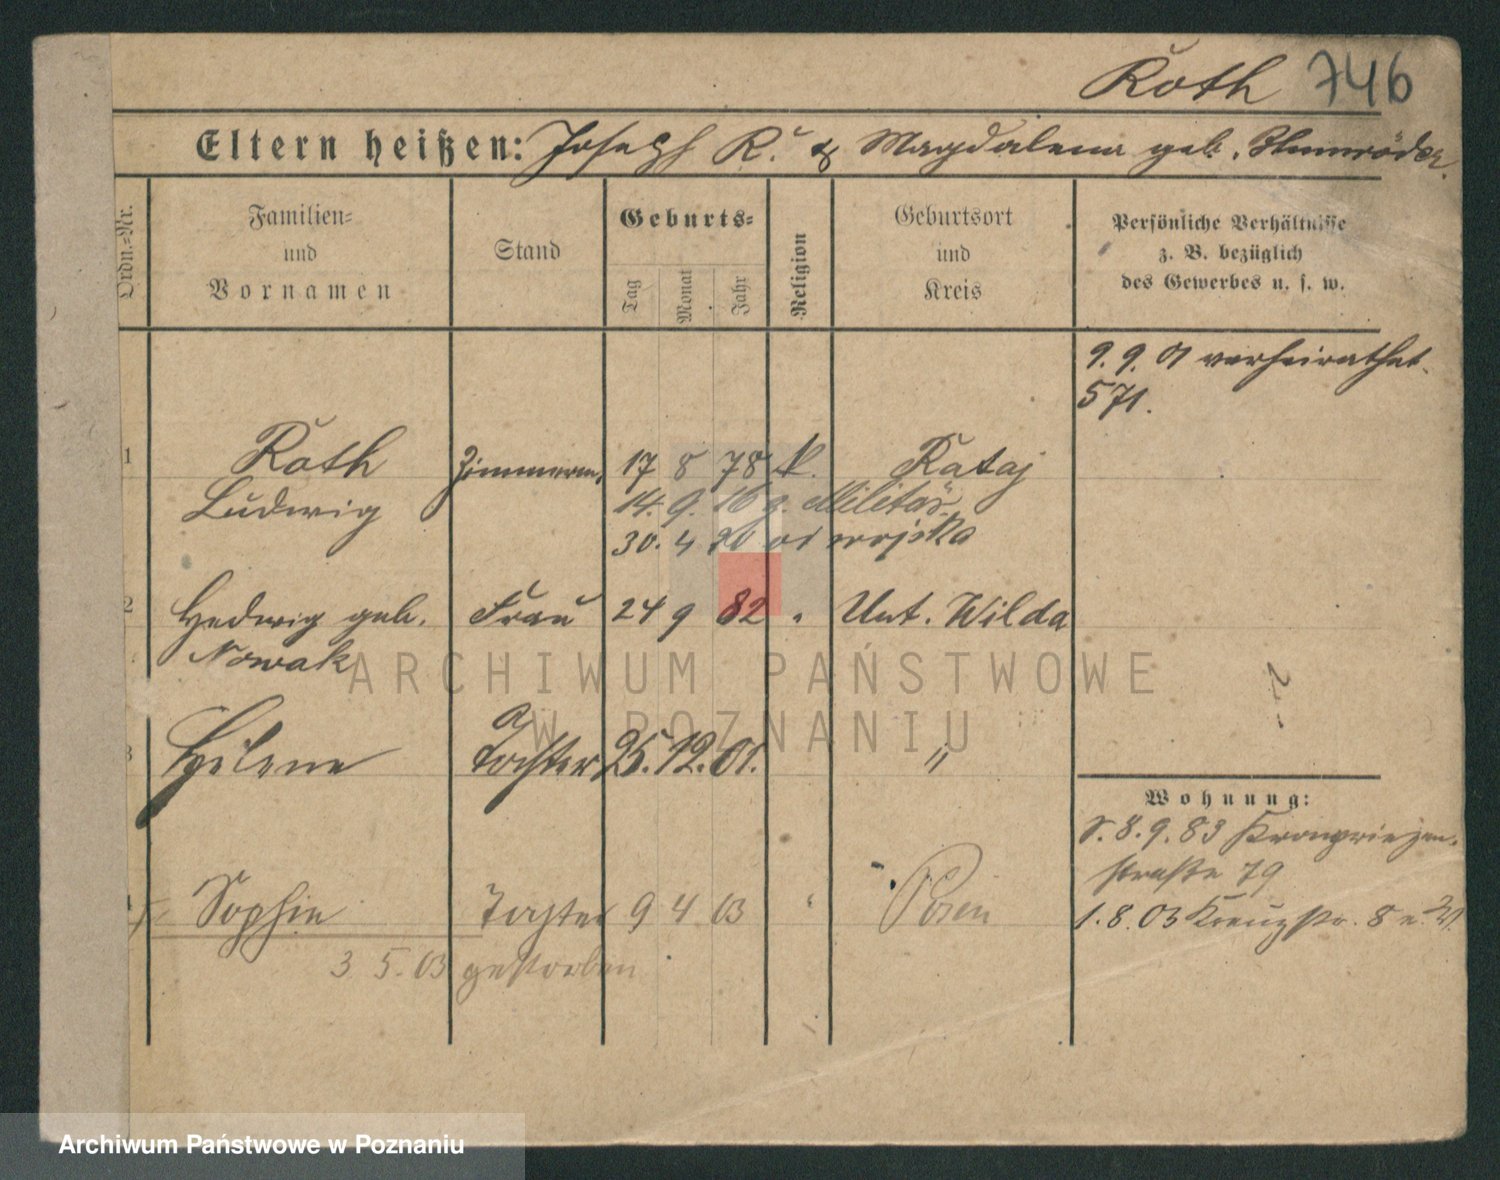 Roth 746
Eltern heißen: Joseph R. & Magdalena geb.
Ordn.=Nr.
Familien=
und
Vornamen
Stand
Geburts=
Tag
Monat
Jahr
Religion
Geburtsort
und
Kreis
Persönliche Verhältnisse
z. B. bezüglich
des Gewerbes u. s. w.
9. 9. 01 verheirathet.
571.
1 Roth Zimmerm. 17 8 78 k. Rataj
Ludwig 14. 9. 16 z. Militär
30. 4 20 od wojska
2 Hedwig geb. Frau 24 9 82 " Unt. Wilda
Nowak
3 Helene Tochter 25. 12. 01. "
Wohnung:
8. 9. 83 Kronprinzen-
straße 79
4 Sophie Tochter 9 4 03 " Posen
1. 8. 03 Kreuzstr. 8
3 5. 03 gestorben
ARCHIWUM PAŃSTWOWE
W POZNANIU
Archiwum Państwowe w Poznaniu